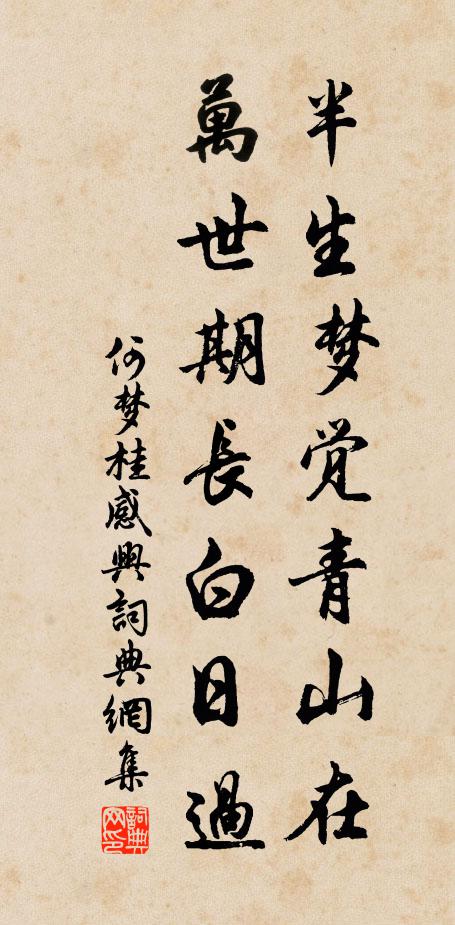 半生梦觉青山在
萬世期長白日過
何梦桂感興詞典網集
詞典网印